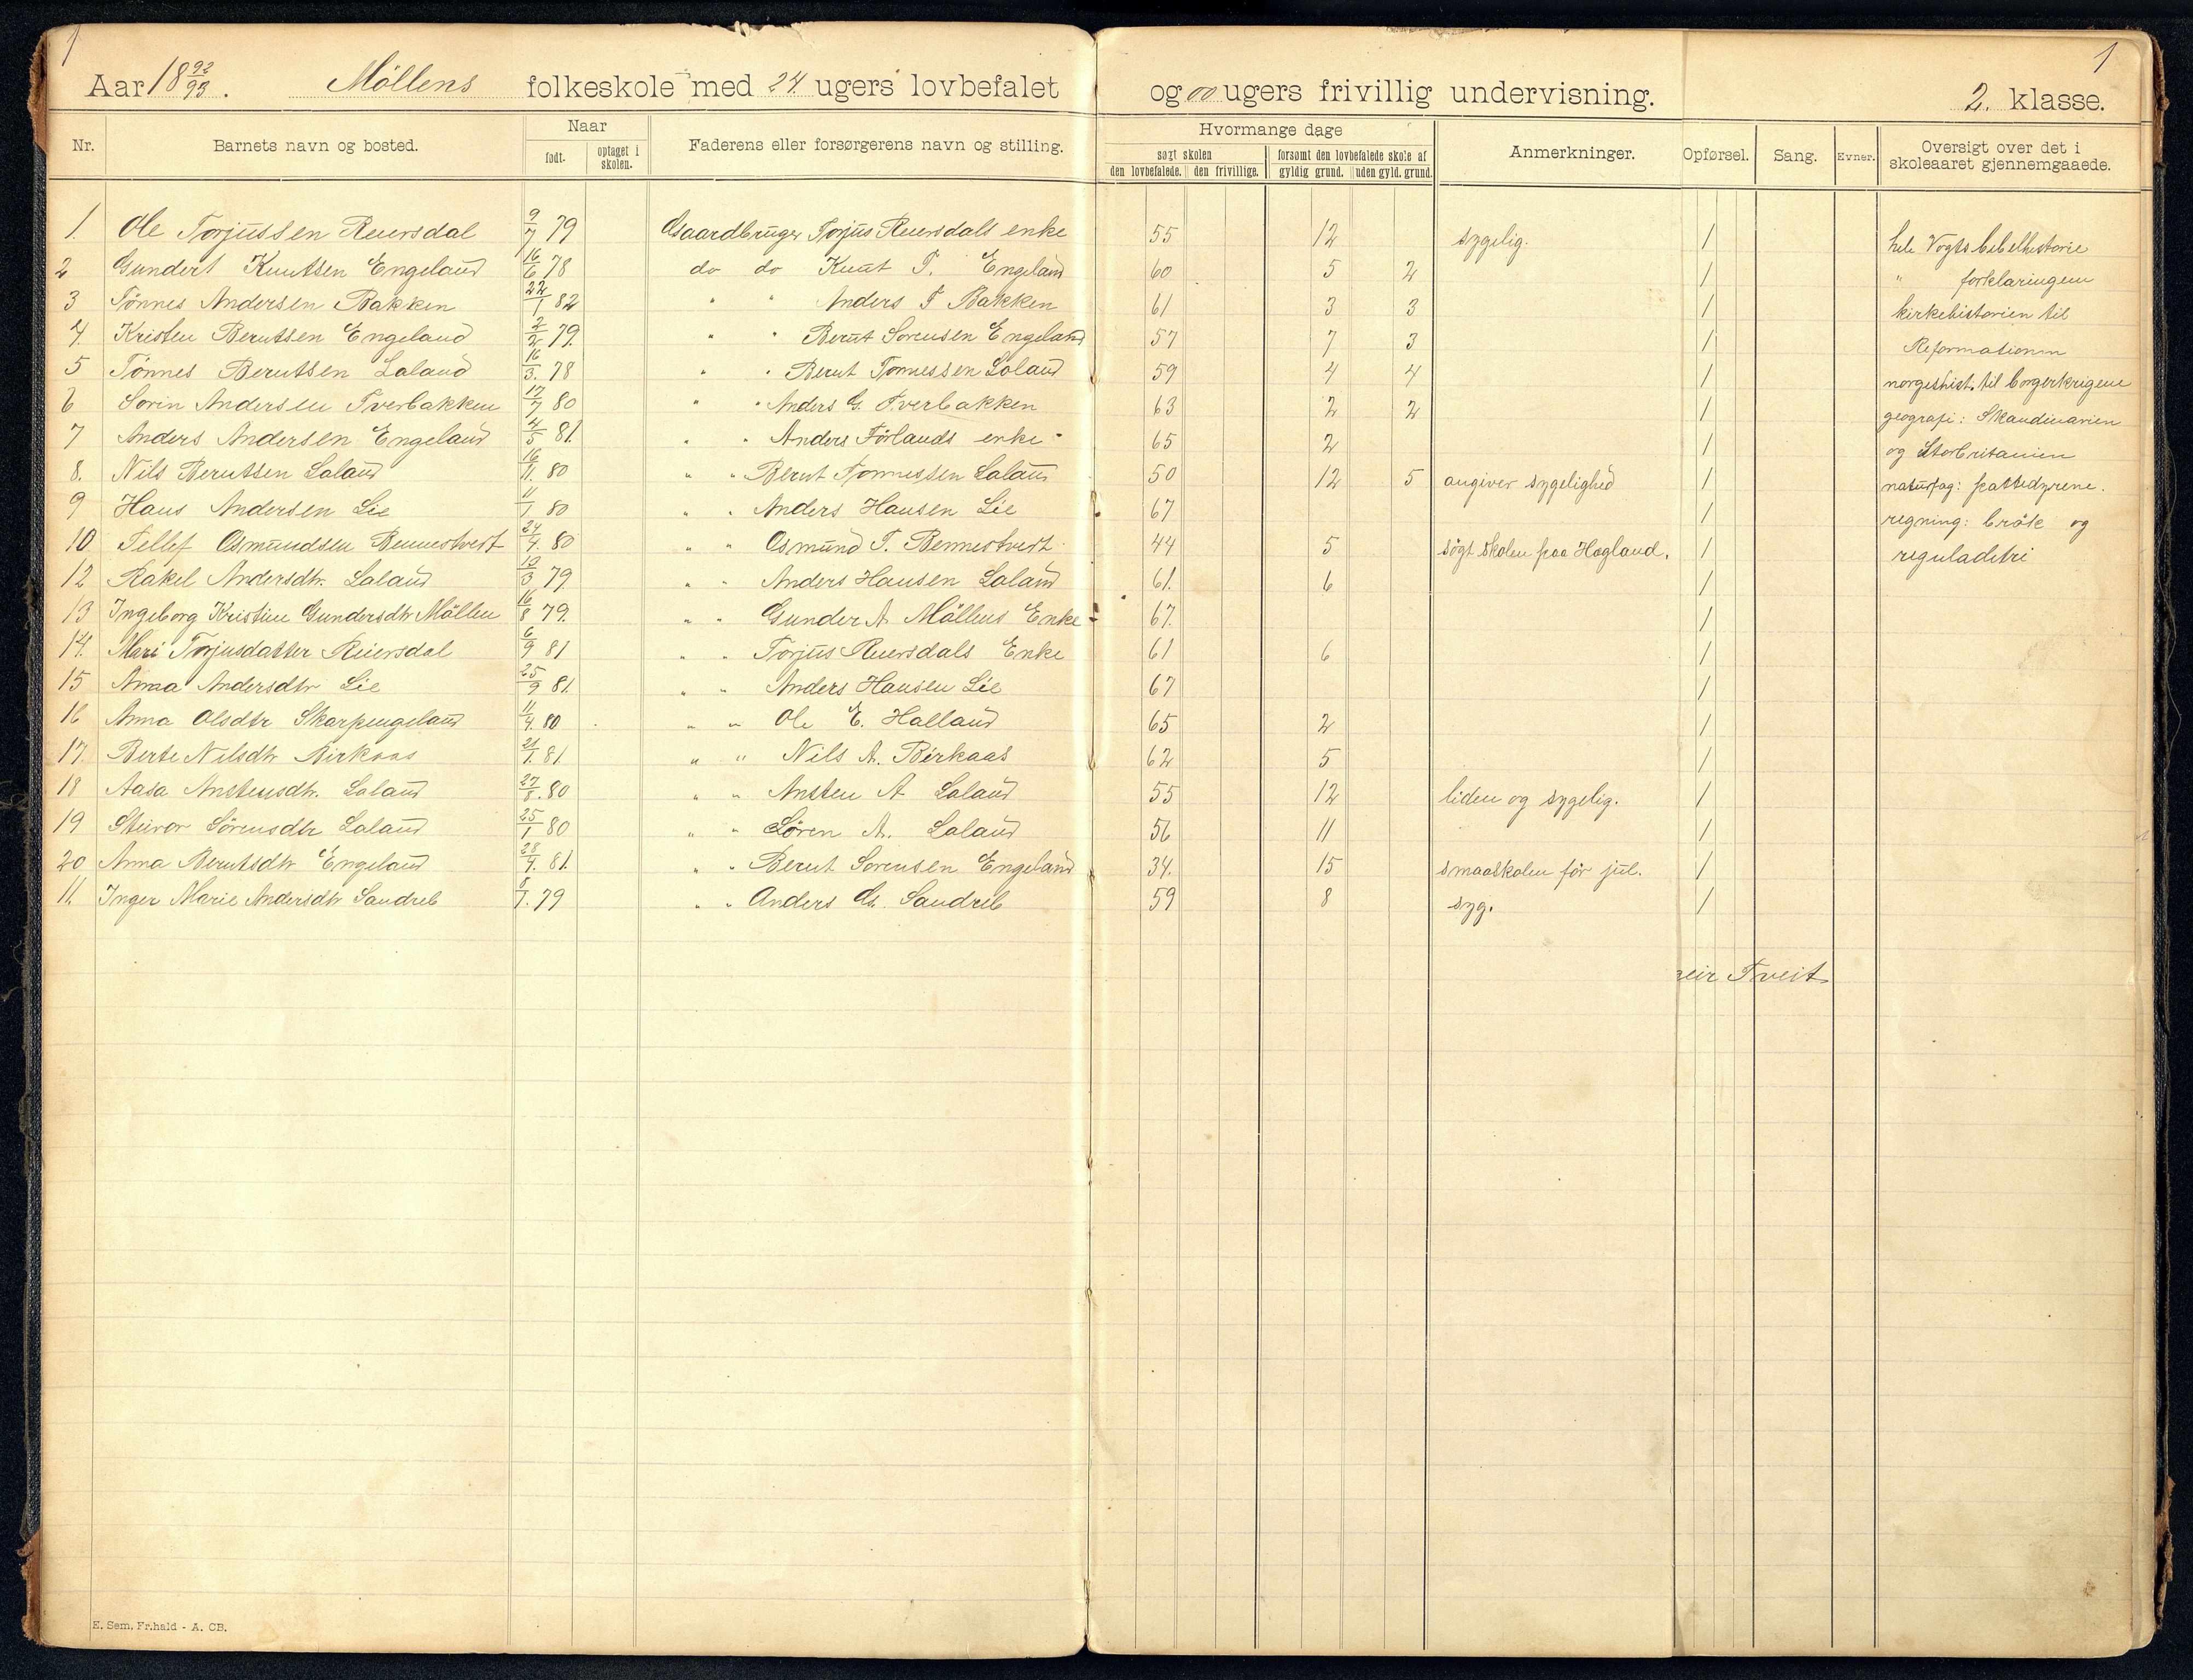 1 1
Aar 18 92/93. Möllens folkeskole med 24 ugers lovbefalet og 00 ugers frivillig undervisning. 2. klasse.
Nr. Barnets navn og bosted. Naar født. optaget i skolen. Faderens eller forsørgerens navn og stilling. Hvormange dage søgt skolen den lovbefalede. den frivillige. forsømt den lovbefalede skole af gyldig grund. uden gyld. grund. Anmerkninger. Opførsel. Sang. Evner. Oversigt over det i skoleaaret gjennemgaaede.
1 Ole Torjussen Reiersdal 9/7 79 Gaardbruger Torjus Reiersdals enke 55 12 sygelig. / hele Vogts bibelhistorie
2 Gundert Knutsen Engeland 16/6 78 do do Knut T. Engeland 60 5 2 / " forklaringen
3 Tönnes Andersen Bakken 22/1 82 " " Anders T Bakken 61 3 3 / kirkehistorien til
4. Kristen Berntsen Engeland 2/2 79. " " Bernt Sorensen Engeland 57 7 3 / Reformationen
5 Tönnes Berntsen Laland 16/3. 78 " " Bernt Tonnessen Loland 59 4 4 / norgeshist. til borgerkrigene
6 Sorin Andersen Tverbakken 17/7 80 " " Anders G. Tverbakken 63 2 2 / geografi: Skandinavien
7 Anders Andersen Engeland 4/5 81. " " Anders Förlands enke 65 2 / og Storbritanien
8. Nils Berntsen Laland 16/11. 80 " " Bernt Tonnessen Laland 50 12 5 angiver sygelighed / naturfag: pattedyrene.
9 Hans Andersen Lie 11/1. 80 " " Anders Hansen Lie 67 / regning: brök og
10. Tellef Osmundsen Bennestvedt 24/4. 80 " " Osmund T. Bennestvedt 44 5 sögt skolen paa Hagland. / reguladetri
12 Rakel Andersdtr. Laland 12/3 79. " " Anders Hansen Laland 61. 6 /
13 Ingeborg Kristine Gundersdtr Möllen 16/8 79. " " Gunder A Möllens Enke 67. /
14. Mari Torjusdatter Reiersdal 6/9 81 " " Torjus Reiersdals Enke 61 6 /
15 Anna Andersdtr Lie 25/9 81. " " Anders Hansen Lie 67 /
16 Anna Olsdtr Skarpengeland 11/4. 80 " " Ole E. Halland 65 2 /
17. Berte Nilsdtr Birkaas 21/1. 81 " " Nils A. Birkaas 62 5 /
18 Aasa Anstensdtr. Laland 27/8. 80 " " Ansten A Laland 55 12 liden og sygelig. /
19 Steinor Sörensdtr Laland 25/1 80 " " Sören A. Laland 56 11 /
20 Anna Berntsdtr Engeland 28/4. 81. " " Bernt Sorensen Engeland 34. 15 smaaskolen för jul. /
11. Inger Marie Andersdtr Sandreb 8/1. 79 " " Anders G. Sandreb 59 8 syg. /
eir Tveit
E. Sem, Fr.hald - A. CB.